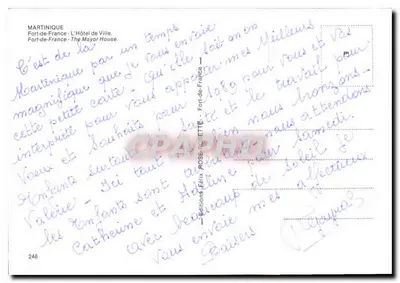 MARTINIQUE
Fort-de-France - L'Hôtel de Ville.
Fort-de-France - The Mayor House.
C'est de la
Martinique par un temps
magnifique que je vous envoie
cette petite carte - Qu'elle soit mon
interprète pour vous apporter mes Meilleurs
Vœux et Souhaits pour 1989 pour vous et vos
Enfants surtout la santé et le travail pour
Valérie - Ici tout va bien nous bronzons.
les Enfants sont nous attendons
Catherine et pour Samedi.
avec beaucoup de soleil je
vous envoie mes affectueux
Baisers
Editions Félix ROSE-ROSETTE - Fort-de-France
CPAPHIL
246